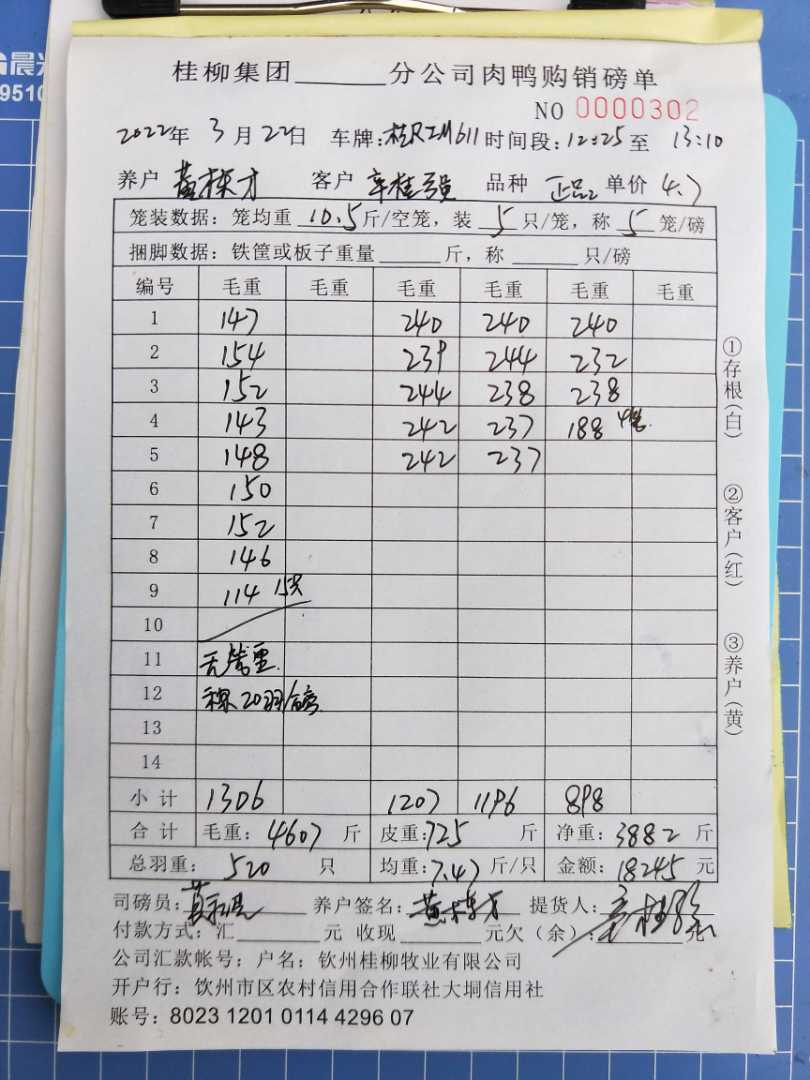 晨光
9510
桂柳集团______分公司肉鸭购销磅单
NO 0000302
2022年 3月22日 车牌: 611 时间段:12:25至 13:10
养户 黄栋才 客户 辛桂强 品种 正品2 单价 4.7
笼装数据：笼均重 10.5斤/空笼，装 5 只/笼，称 5 笼/磅
捆脚数据：铁筐或板子重量______斤，称______只/磅
编号 毛重 毛重 毛重 毛重 毛重 毛重
1 147 240 240 240
2 154 239 244 232
3 152 244 238 238
4 143 242 237 188 4笼
5 148 242 237
6 150
7 152
8 146
9 114 15只
10
11 无笼重
12 20羽/磅
13
14
小计 1306 1207 1196 898
合计 毛重: 4607 斤 皮重:725 斤 净重:3882 斤
总羽重: 520 只 均重:7.47斤/只 金额:18245元
司磅员: 养户签名:黄栋才 提货人:辛桂强
付款方式：汇______元 收现______元欠（余）:______元
公司汇款帐号：户名：钦州桂柳牧业有限公司
开户行：饮州市区农村信用合作联社大垌信用社
账号：8023 1201 0114 4296 07
①存根(白)
②客户(红)
③养户(黄)